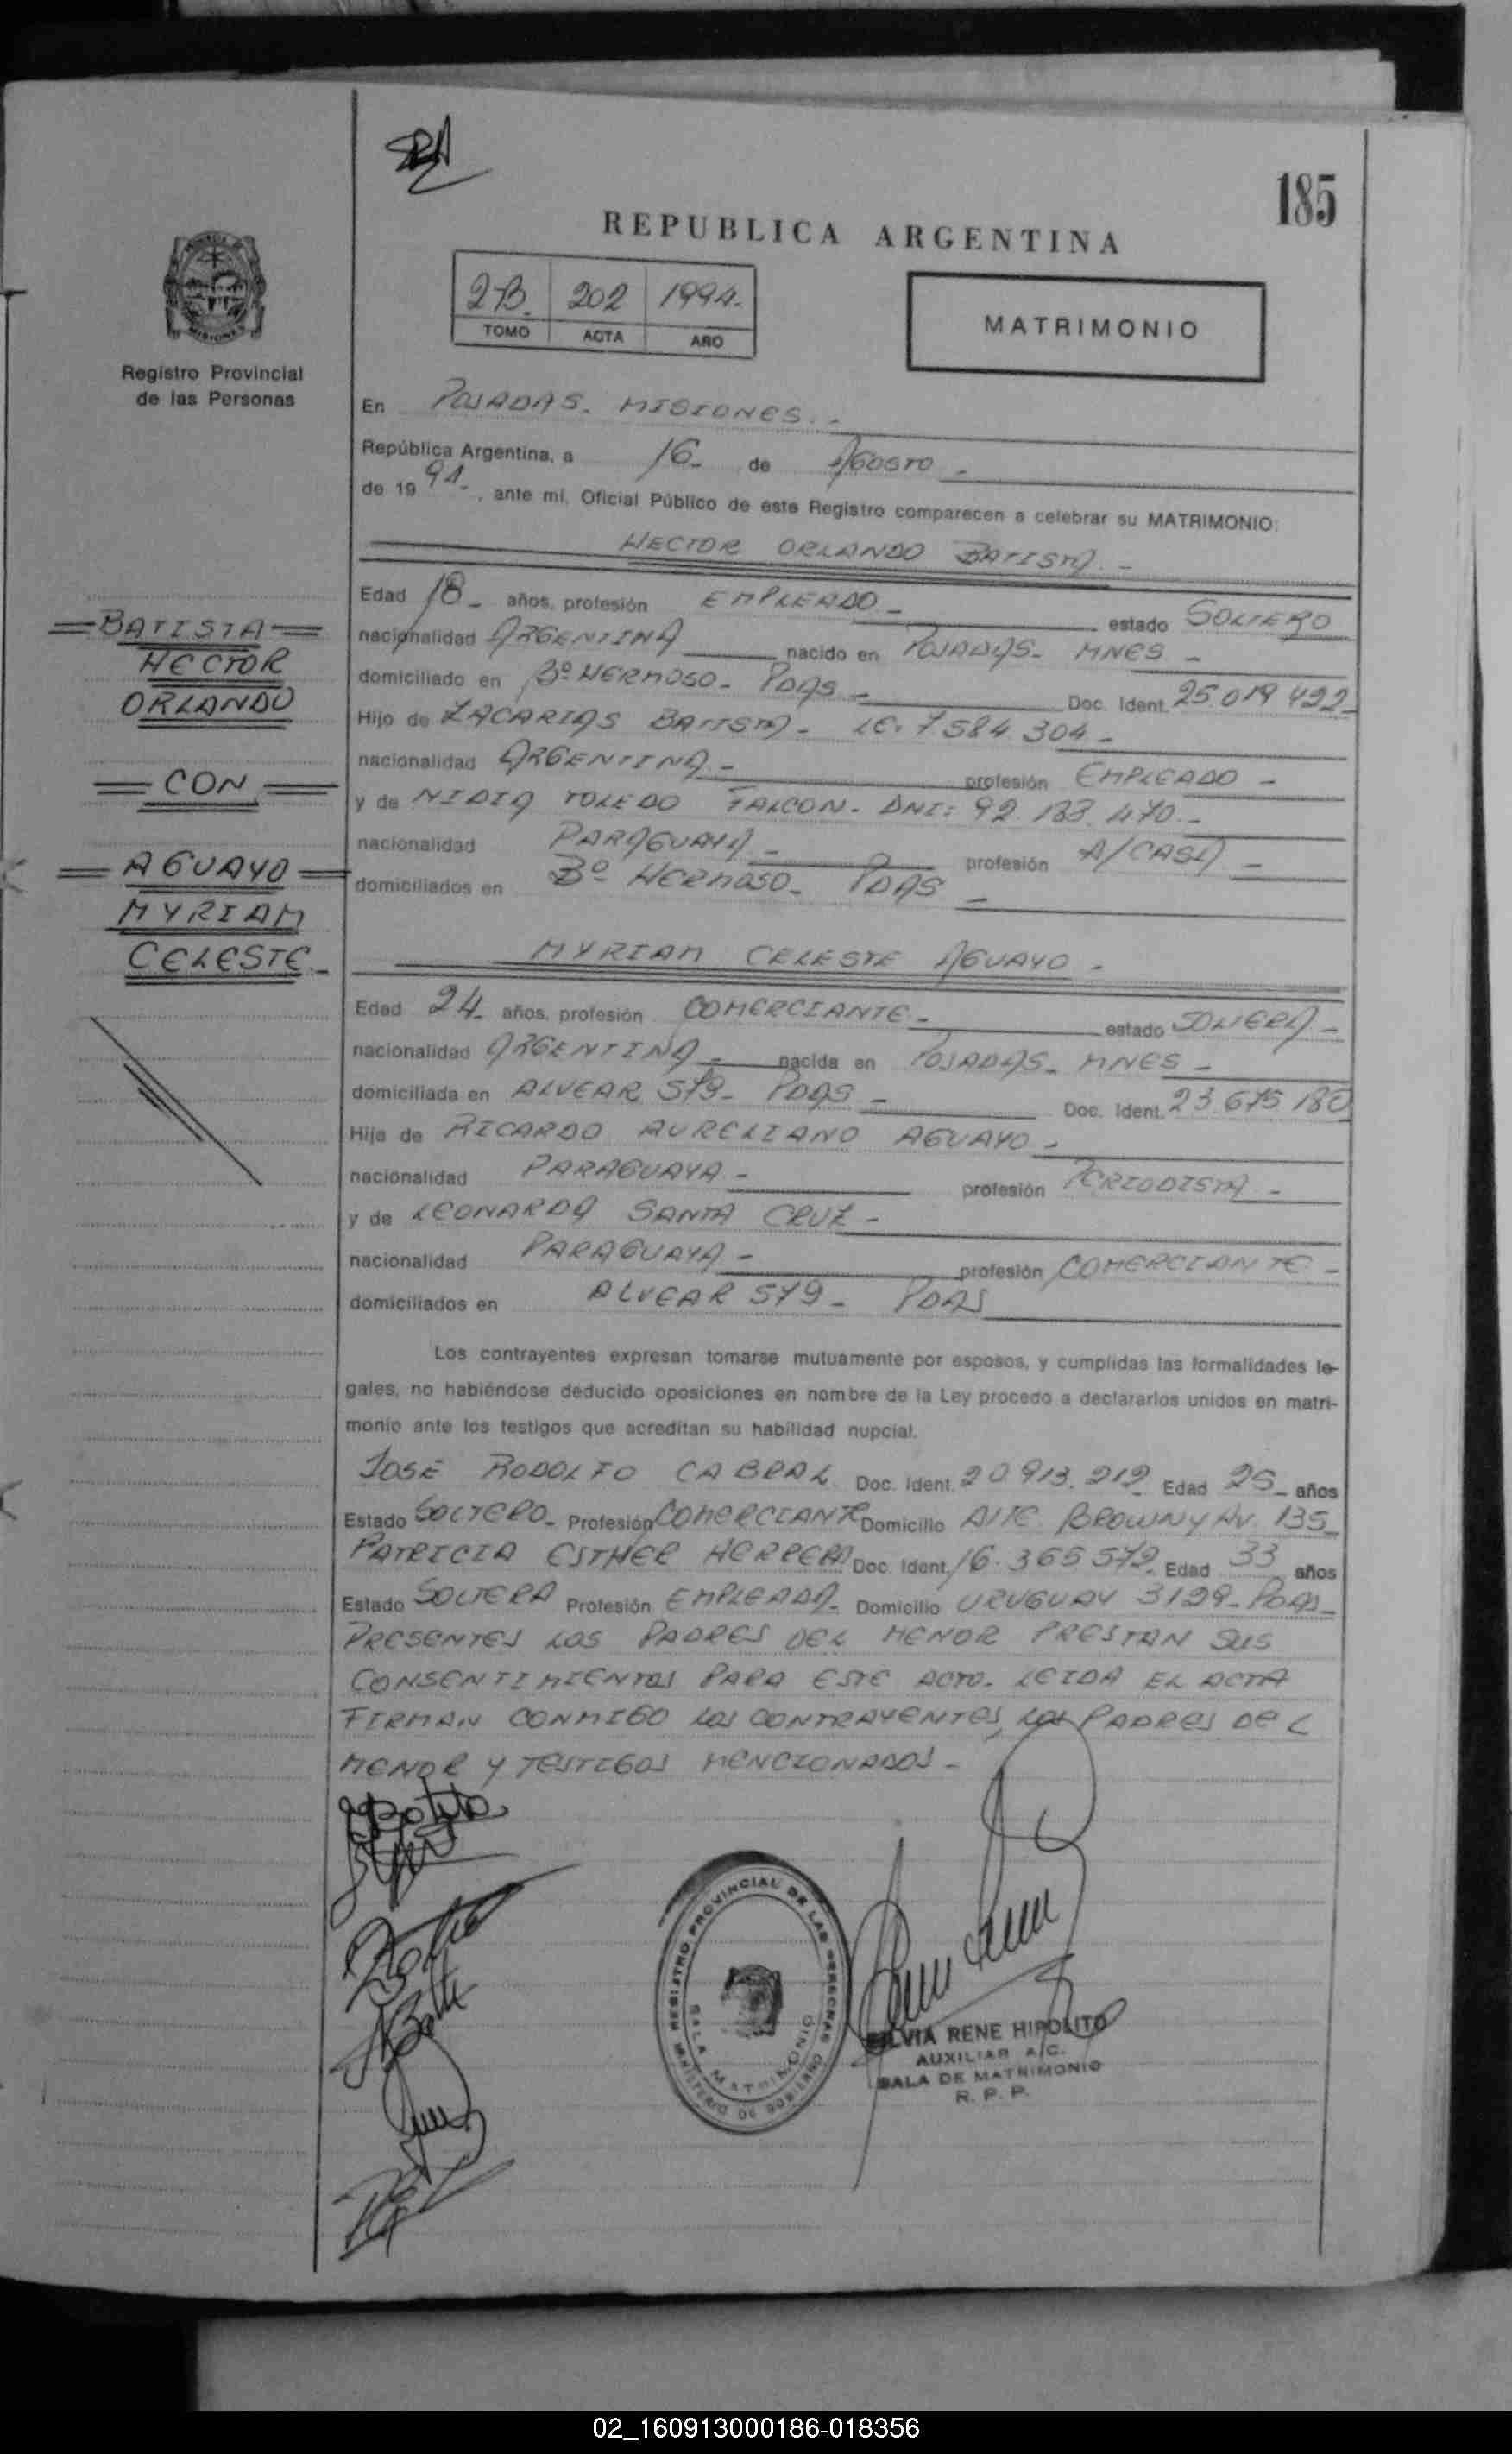 185
REPUBLICA ARGENTINA
2-B. 202 1994.-
TOMO ACTA AÑO
MATRIMONIO
Registro Provincial
de las Personas
En POSADAS. MISIONES. -
República Argentina, a 16- de AGOSTO -
de 19 94- , ante mi, Oficial Público de este Registro comparecen a celebrar su MATRIMONIO:
HECTOR ORLANDO BATISTA. -
Edad 18- años, profesión EMPLEADO - estado SOLTERO
nacionalidad ARGENTINA nacido en POSADAS- MNES -
domiciliado en Bº HERMOSO- PDAS - Doc. Ident. 25.019 422-
Hijo de ZACARIAS BATISTA - LE. 7.584.304 -
nacionalidad ARGENTINA - profesión EMPLEADO -
y de NIDIA TOLEDO FALCON- DNI: 92.133.470. -
nacionalidad PARAGUAYA - profesión A/CASA -
domiciliados en Bº HERMOSO- PDAS -
BATISTA
HECTOR
ORLANDO
CON
AGUAYO
MYRIAM
CELESTE -
MYRIAM CELESTE AGUAYO -
Edad 24- años, profesión COMERCIANTE - estado SOLTERA -
nacionalidad ARGENTINA - nacida en POSADAS- MNES -
domiciliada en ALVEAR 579- PDAS - Doc. Ident. 23.675 180
Hija de RICARDO AURELIANO AGUAYO -
nacionalidad PARAGUAYA - profesión PERIODISTA -
y de LEONARDA SANTA CRUZ -
nacionalidad PARAGUAYA - profesión COMERCIANTE -
domiciliados en ALVEAR 579- PDAS
Los contrayentes expresan tomarse mutuamente por esposos, y cumplidas las formalidades le-
gales, no habiéndose deducido oposiciones en nombre de la Ley procedo a declararlos unidos en matri-
monio ante los testigos que acreditan su habilidad nupcial.
JOSE RODOLFO CABRAL Doc. Ident. 20.913.212 Edad 25- años
Estado SOLTERO- Profesión COMERCIANTE Domicilio ALTE. BROWN y AV. 135-
PATRICIA ESTHER HERRERA Doc. Ident. 16.365 572- Edad 33 años
Estado SOLTERA Profesión EMPLEADA- Domicilio URUGUAY 3129- PDAS-
PRESENTES LOS PADRES DEL MENOR PRESTAN SUS
CONSENTIMIENTOS PARA ESTE ACTO. LEIDA EL ACTA
FIRMAN CONMIGO LOS CONTRAYENTES, LOS PADRES DEL
MENOR Y TESTIGOS MENCIONADOS -
REGISTRO PROVINCIAL DE LAS PERSONAS
SALA MATRIMONIO
MINISTERIO DE GOBIERNO
SILVIA RENE HIPOLITO
AUXILIAR A/C.
SALA DE MATRIMONIO
R. P. P.
02_160913000186-018356